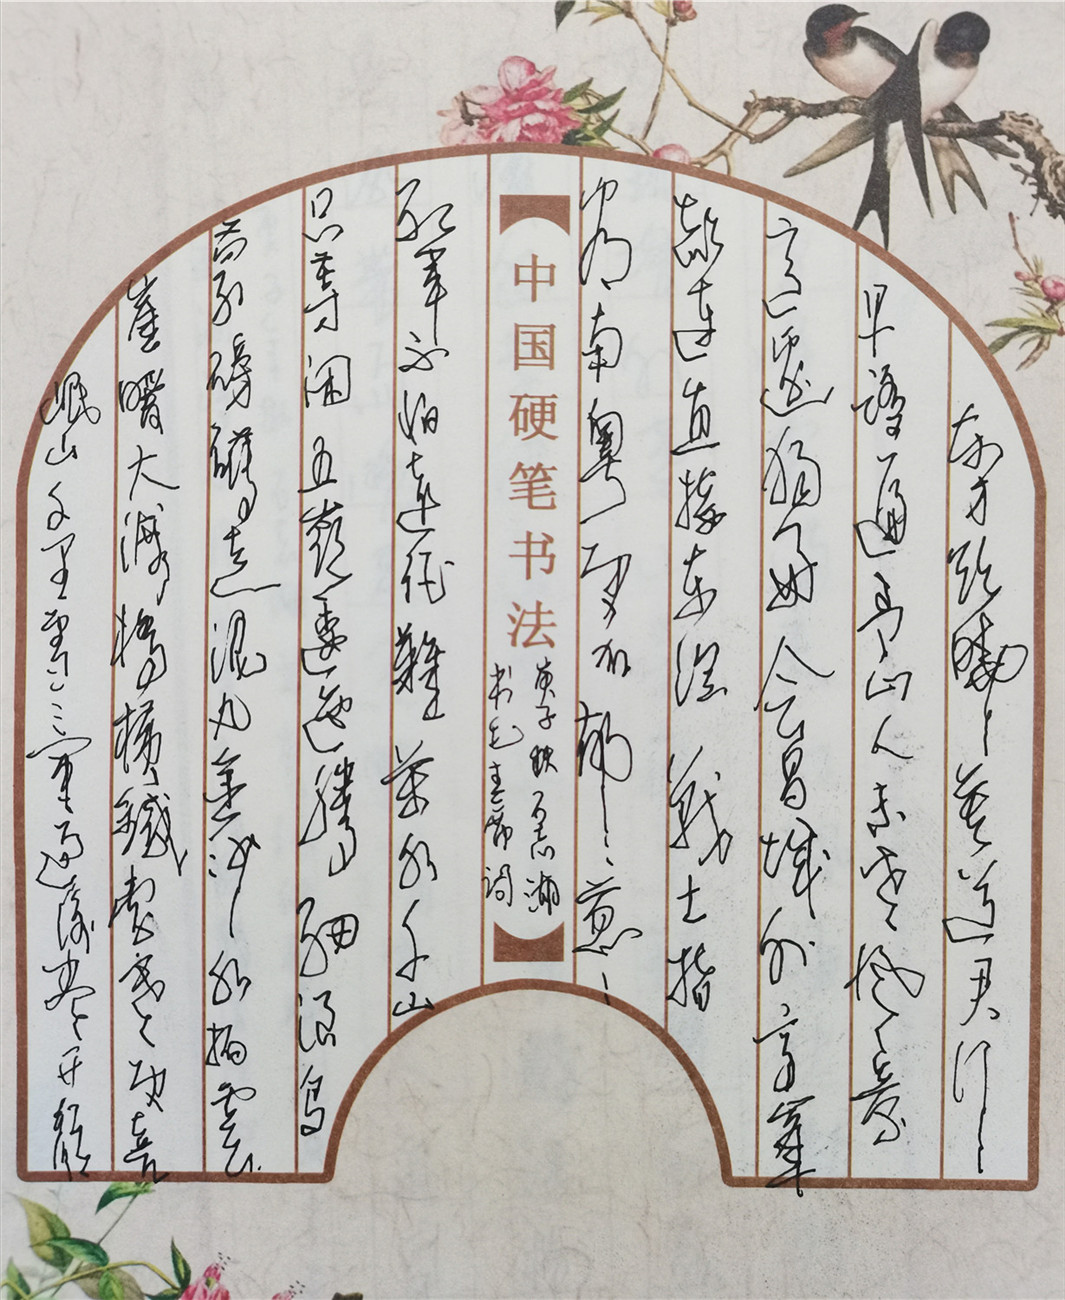 东方欲晓莫道君行
早踏遍青山人未老风景
这边独好会昌城外高峯
颠连直接东溟战士指
看南粤更加郁郁葱葱
中国硬笔书法
庚子秋
书毛主席词
红军不怕远征難萬水千山
只等闲五嶺逶迤腾细浪乌
蒙磅礴走泥丸金沙水拍雲
崖暖大渡橋横鐵索寒更喜
岷山千里雪三军过後尽开颜